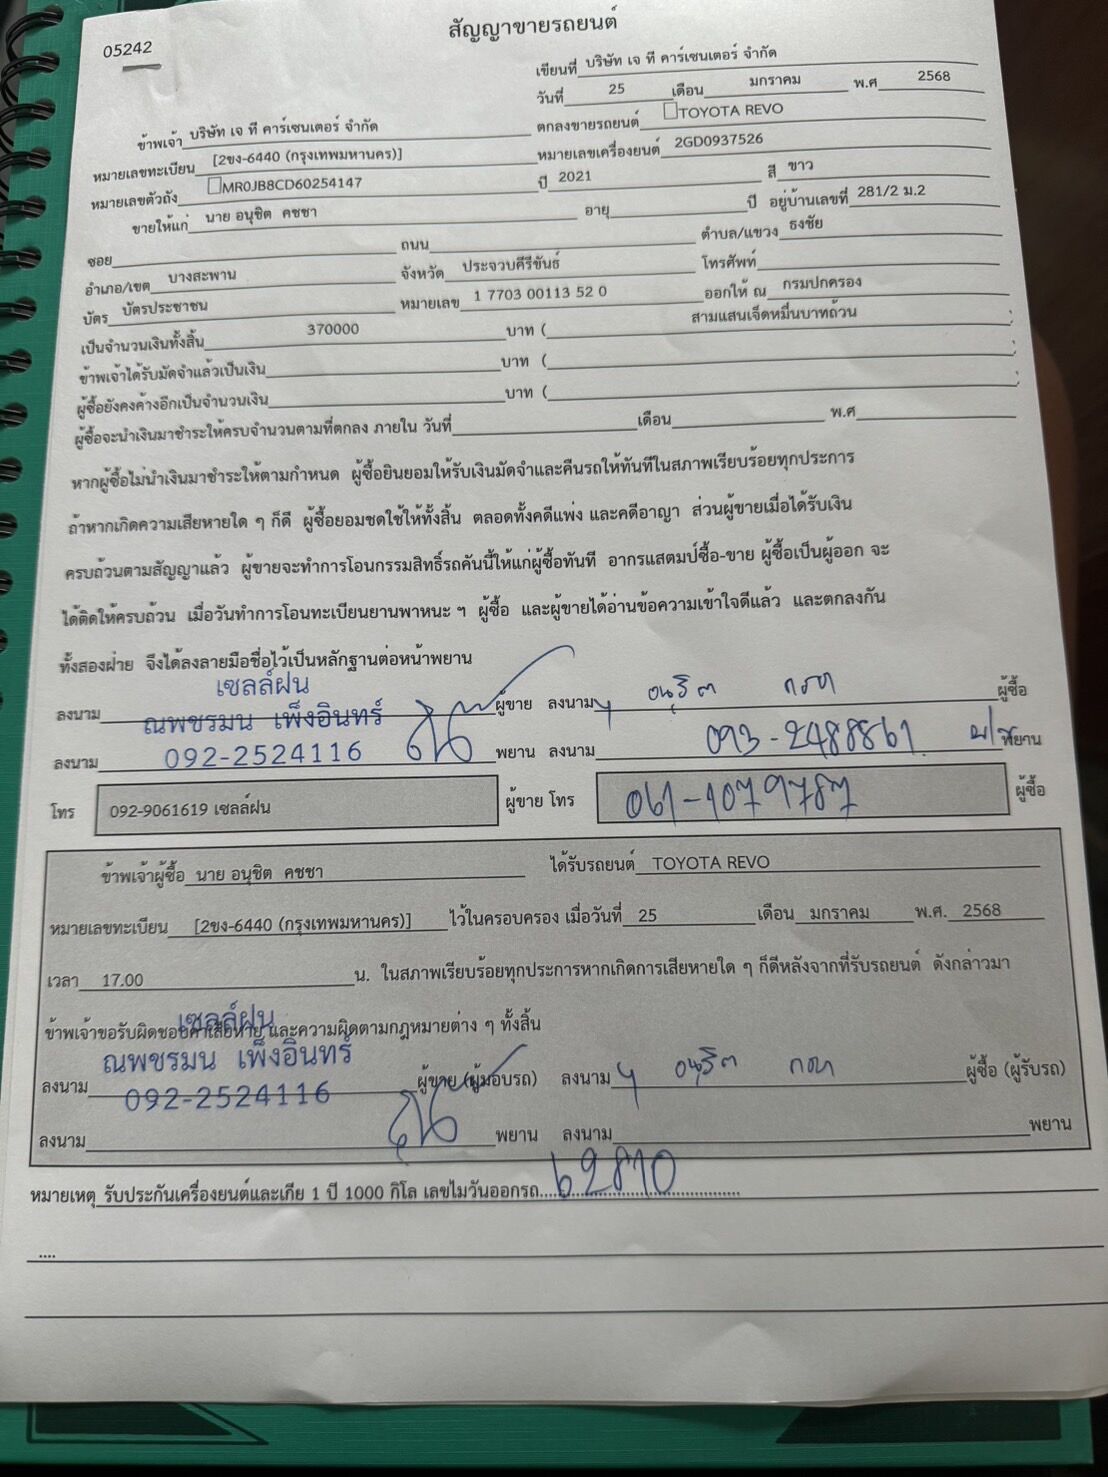 สัญญาขายรถยนต์
05242
เขียนที่ บริษัท เจ ที คาร์เซนเตอร์ จำกัด
วันที่ 25 เดือน มกราคม พ.ศ 2568
ข้าพเจ้า บริษัท เจ ที คาร์เซนเตอร์ จำกัด ตกลงขายรถยนต์ TOYOTA REVO
หมายเลขทะเบียน [2ขง-6440 (กรุงเทพมหานคร)] หมายเลขเครื่องยนต์ 2GD0937526
หมายเลขตัวถัง MR0JB8CD60254147 ปี 2021 สี ขาว
ขายให้แก่ นาย อนุชิต คชชา อายุ ปี อยู่บ้านเลขที่ 281/2 ม.2
ซอย ถนน ตำบล/แขวง ธงชัย
อำเภอ/เขต บางสะพาน จังหวัด ประจวบคีรีขันธ์ โทรศัพท์
บัตร บัตรประชาชน หมายเลข 1 7703 00113 52 0 ออกให้ ณ กรมปกครอง
เป็นจำนวนเงินทั้งสิ้น 370000 บาท ( สามแสนเจ็ดหมื่นบาทถ้วน )
ข้าพเจ้าได้รับมัดจำแล้วเป็นเงิน บาท ( )
ผู้ซื้อยังคงค้างอีกเป็นจำนวนเงิน บาท ( )
ผู้ซื้อจะนำเงินมาชำระให้ครบจำนวนตามที่ตกลง ภายใน วันที่ เดือน พ.ศ
หากผู้ซื้อไม่นำเงินมาชำระให้ตามกำหนด ผู้ซื้อยินยอมให้รับเงินมัดจำและคืนรถให้ทันทีในสภาพเรียบร้อยทุกประการ
ถ้าหากเกิดความเสียหายใด ๆ ก็ดี ผู้ซื้อยอมชดใช้ให้ทั้งสิ้น ตลอดทั้งคดีแพ่ง และคดีอาญา ส่วนผู้ขายเมื่อได้รับเงิน
ครบถ้วนตามสัญญาแล้ว ผู้ขายจะทำการโอนกรรมสิทธิ์รถคันนี้ให้แก่ผู้ซื้อทันที อากรแสตมป์ซื้อ-ขาย ผู้ซื้อเป็นผู้ออก จะ
ได้ติดให้ครบถ้วน เมื่อวันทำการโอนทะเบียนยานพาหนะ ฯ ผู้ซื้อ และผู้ขายได้อ่านข้อความเข้าใจดีแล้ว และตกลงกัน
ทั้งสองฝ่าย จึงได้ลงลายมือชื่อไว้เป็นหลักฐานต่อหน้าพยาน
เซลล์ฝน
ลงนาม ณพชรมน เพ็งอินทร์ ผู้ขาย ลงนาม อนุชิต คชชา ผู้ซื้อ
ลงนาม 092-2524116 พยาน ลงนาม 093-2488861 พยาน
โทร 092-9061619 เซลล์ฝน ผู้ขาย โทร 061-1079787 ผู้ซื้อ
ข้าพเจ้าผู้ซื้อ นาย อนุชิต คชชา ได้รับรถยนต์ TOYOTA REVO
หมายเลขทะเบียน [2ขง-6440 (กรุงเทพมหานคร)] ไว้ในครอบครอง เมื่อวันที่ 25 เดือน มกราคม พ.ศ. 2568
เวลา 17.00 น. ในสภาพเรียบร้อยทุกประการหากเกิดการเสียหายใด ๆ ก็ดีหลังจากที่รับรถยนต์ ดังกล่าวมา
ข้าพเจ้าขอรับผิดชอบค่าเสียหาย และความผิดตามกฎหมายต่าง ๆ ทั้งสิ้น
เซลล์ฝน
ณพชรมน เพ็งอินทร์
ลงนาม 092-2524116 ผู้ขาย (ผู้มอบรถ) ลงนาม อนุชิต คชชา ผู้ซื้อ (ผู้รับรถ)
ลงนาม พยาน ลงนาม พยาน
หมายเหตุ รับประกันเครื่องยนต์และเกีย 1 ปี 1000 กิโล เลขไมวันออกรถ 62810
....